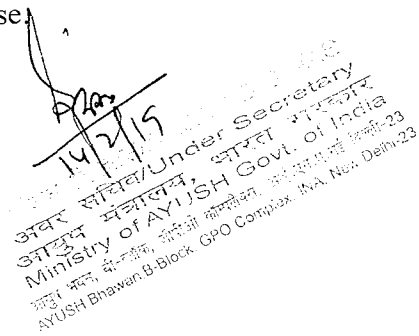 se.
14/2/19
अवर सचिव/Under Secretary
आयुष मंत्रालय, भारत सरकार
Ministry of AYUSH Govt. of India
आयुष भवन, बी-ब्लॉक, जीपीओ कॉम्प्लेक्स, आई.एन.ए, नई दिल्ली-23
AYUSH Bhawan B-Block, GPO Complex, INA, New Delhi-23